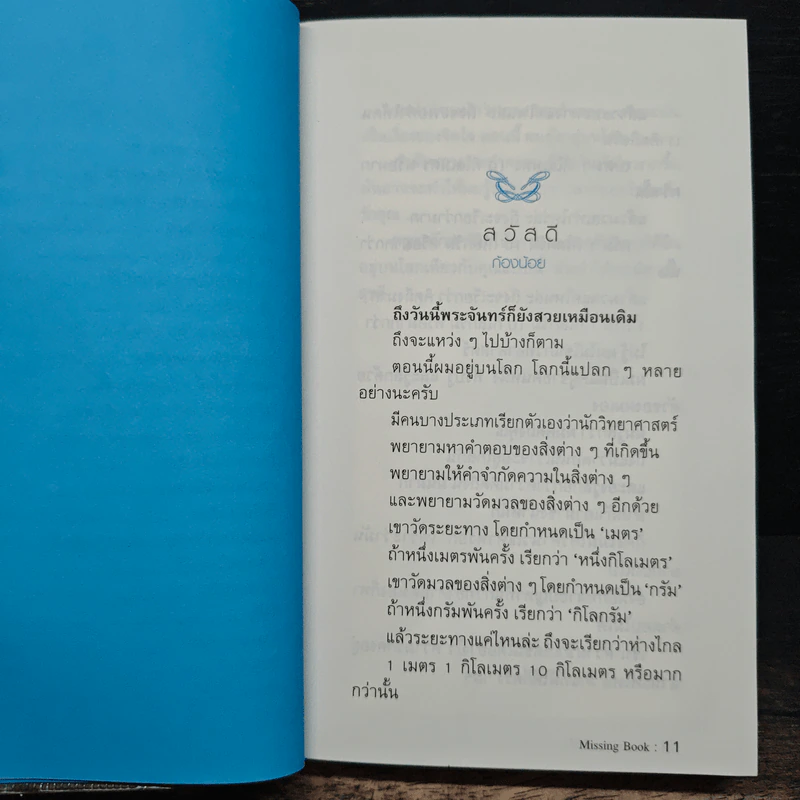 สวัสดี
ก้องน้อย
ถึงวันนี้พระจันทร์ก็ยังสวยเหมือนเดิม
ถึงจะแหว่ง ๆ ไปบ้างก็ตาม
ตอนนี้ผมอยู่บนโลก โลกนี้แปลก ๆ หลาย
อย่างนะครับ
มีคนบางประเภทเรียกตัวเองว่านักวิทยาศาสตร์
พยายามหาคำตอบของสิ่งต่าง ๆ ที่เกิดขึ้น
พยายามให้คำจำกัดความในสิ่งต่าง ๆ
และพยายามวัดมวลของสิ่งต่าง ๆ อีกด้วย
เขาวัดระยะทาง โดยกำหนดเป็น 'เมตร'
ถ้าหนึ่งเมตรพันครั้ง เรียกว่า 'หนึ่งกิโลเมตร'
เขาวัดมวลของสิ่งต่าง ๆ โดยกำหนดเป็น 'กรัม'
ถ้าหนึ่งกรัมพันครั้ง เรียกว่า 'กิโลกรัม'
แล้วระยะทางแค่ไหนล่ะ ถึงจะเรียกว่าห่างไกล
1 เมตร 1 กิโลเมตร 10 กิโลเมตร หรือมาก
กว่านั้น
Missing Book : 11